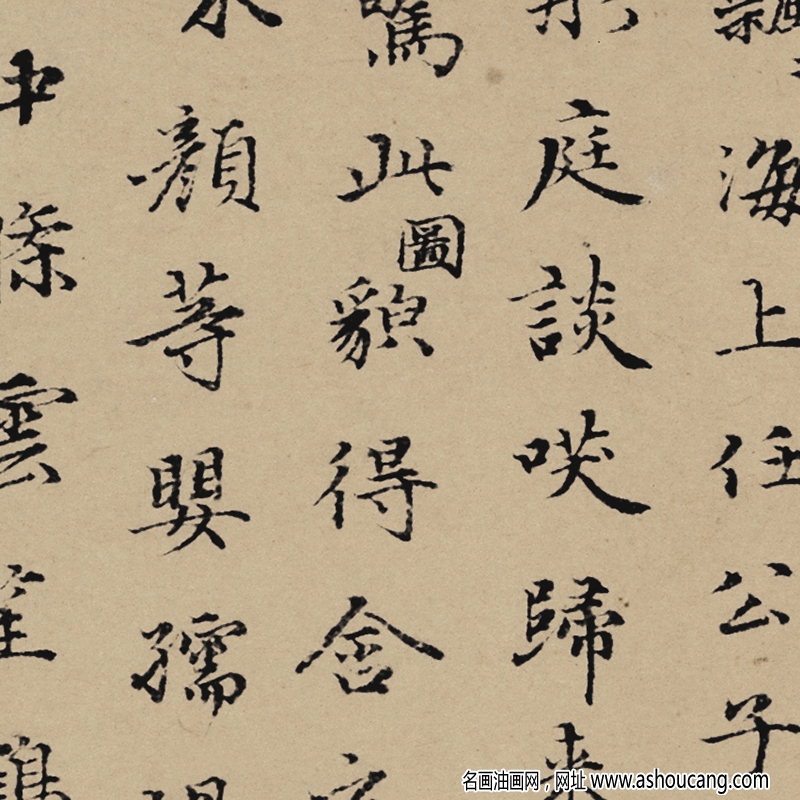 海上任公子
庭談唉歸来
驚此圖貌得舍
顏等嬰孺
中條雲
名画油画网，网址 www.ashoucang.com